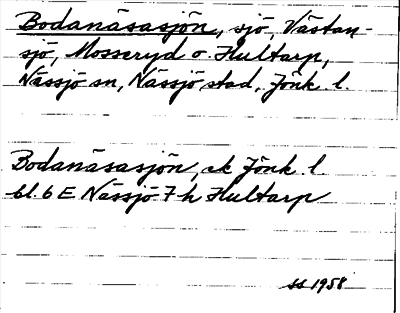 Bodanäsasjön, sjö, Västan-
sjö, Mosseryd o. Hultarp,
Nässjö sn, Nässjö stad, Jönk. l.
Bodanäsasjön, ek Jönk. l.
bl. 6 E Nässjö 7 h Hultarp
ss 1958